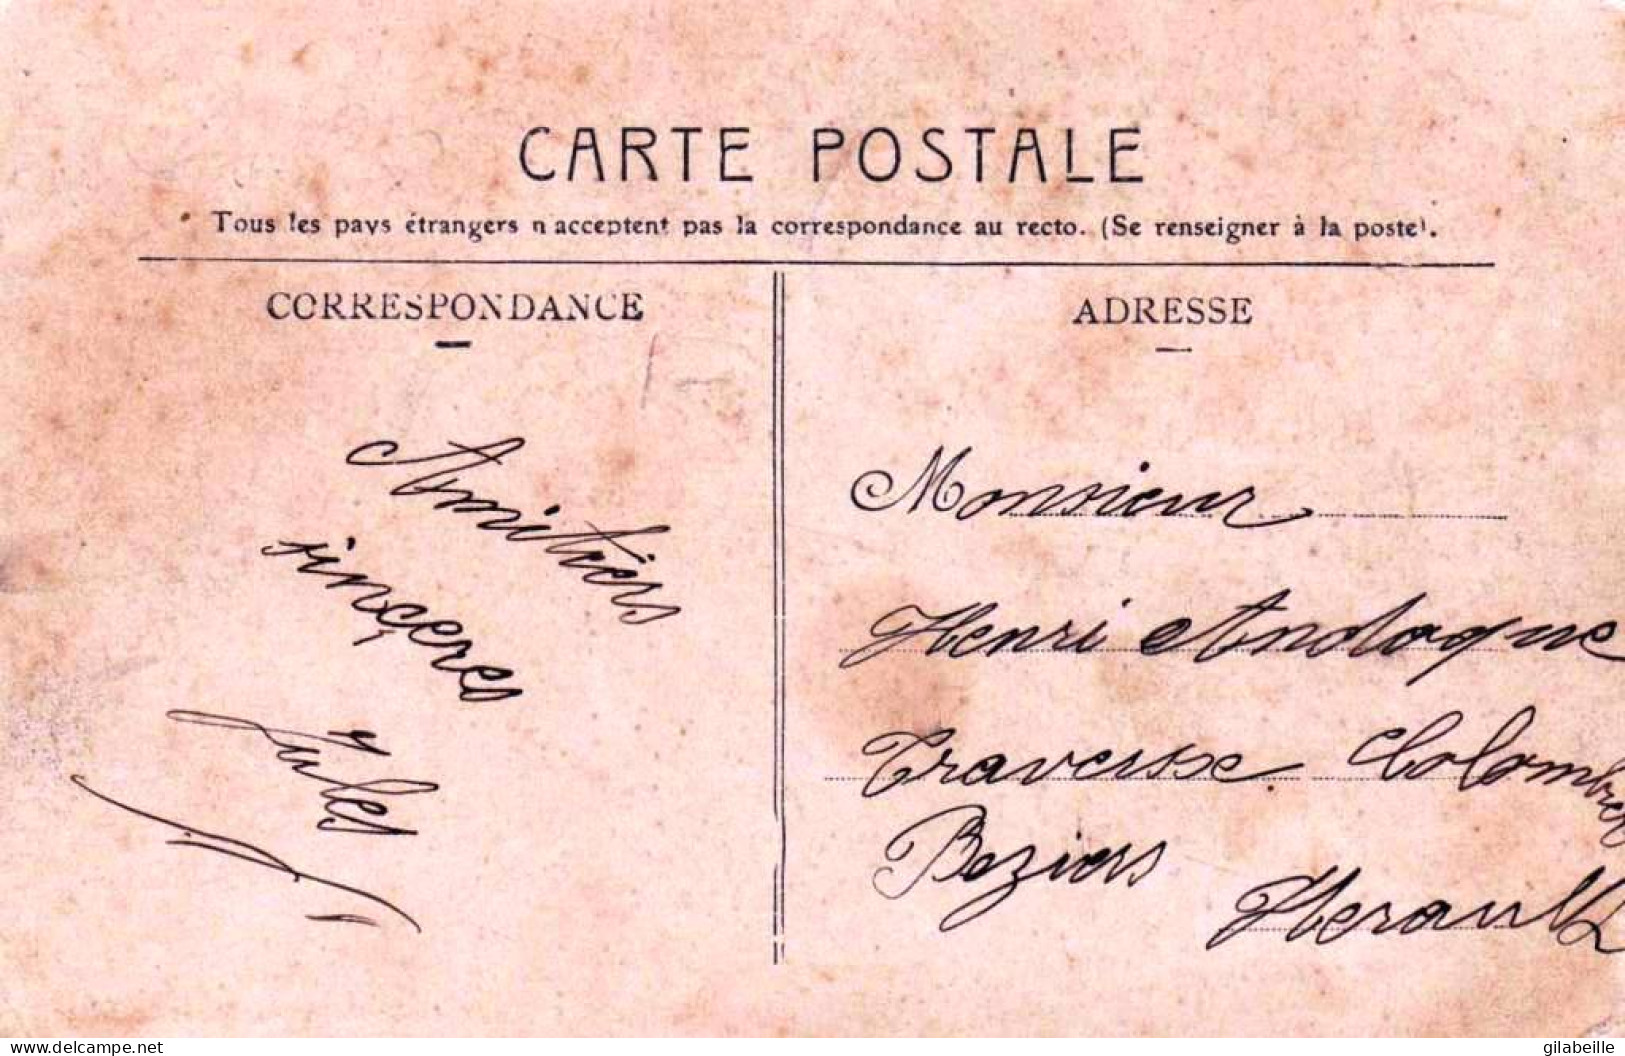 CARTE POSTALE
Tous les pays étrangers n'acceptent pas la correspondance au recto. (Se renseigner à la poste).
CORRESPONDANCE
Amitiers
sinçeres
Jules
ADRESSE
Monsieur
Henri Andoque
Traversse Colombres
Beziers
Herault
www.delcampe.net
gilabeille